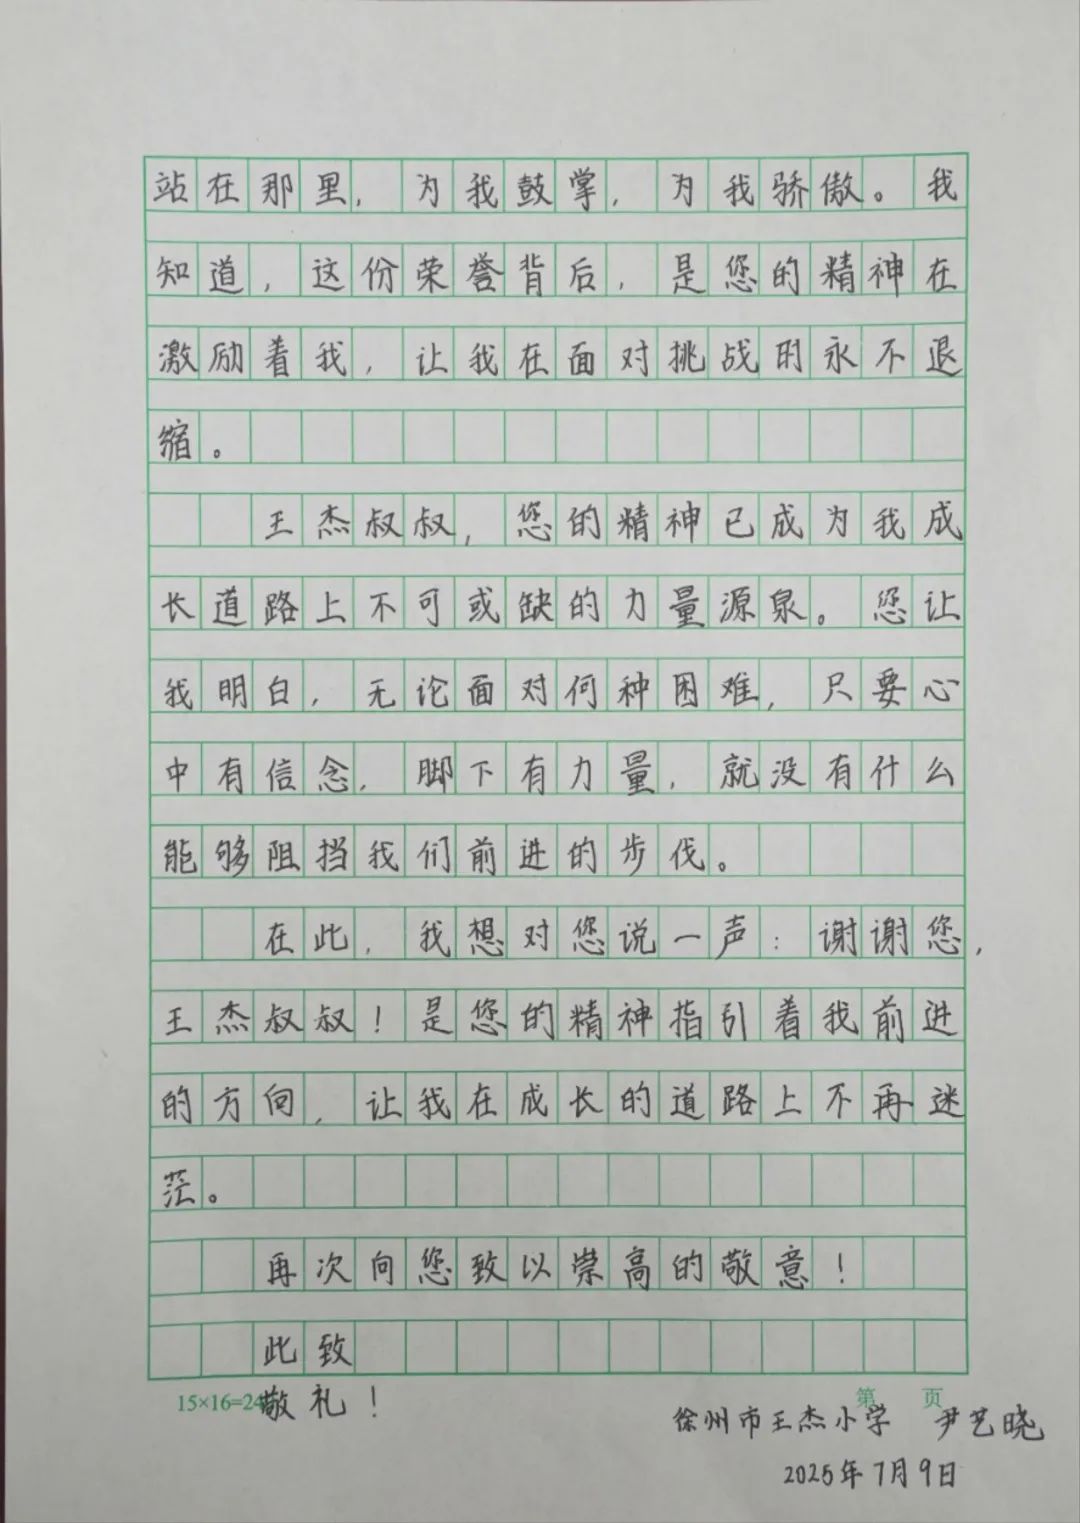 站在那里，为我鼓掌，为我骄傲。我
知道，这份荣誉背后，是您的精神在
激励着我，让我在面对挑战时永不退
缩。
王杰叔叔，您的精神已成为我成
长道路上不可或缺的力量源泉。您让
我明白，无论面对何种困难，只要心
中有信念，脚下有力量，就没有什么
能够阻挡我们前进的步伐。
在此，我想对您说一声：谢谢您，
王杰叔叔！是您的精神指引着我前进
的方向，让我在成长的道路上不再迷
茫。
再次向您致以崇高的敬意！
此致
敬礼！
15×16=24
第 页
徐州市王杰小学 尹艺晓
2025年7月9日